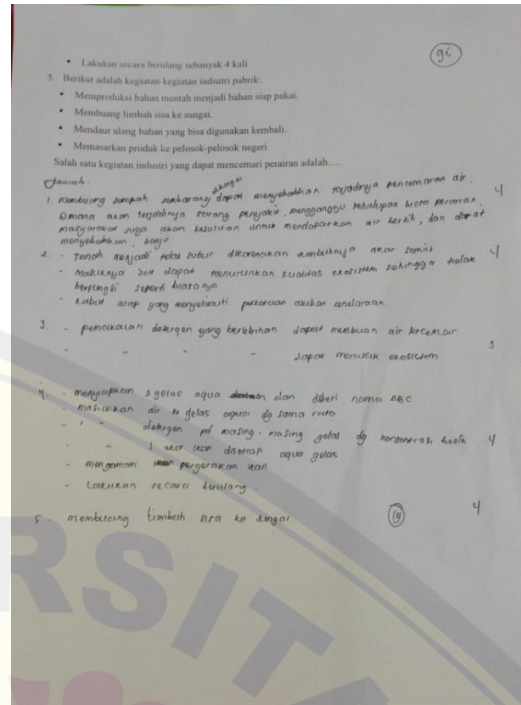 95
• Lakukan secara berulang sebanyak 4 kali
5. Berikut adalah kegiatan-kegiatan indsutri pabrik:
• Memproduksi bahan mentah menjadi bahan siap pakai.
• Membuang limbah sisa ke sungai.
• Mendaur ulang bahan yang bisa digunakan kembali.
• Memasarkan produk ke pelosok-pelosok negeri
Salah satu kegiatan industri yang dapat mencemari perairan adalah….
Jawab.
sehingga
1. membuang sampah sembarang dapat menyebabkan terjadinya pencemaran air. 4
Dmana akan terjadinya sarang penyakit, mengganggu kehidupan biota perairan,
masyarakat juga akan kesulitan untuk mendapatkan air bersih, dan dapat
menyebabkan banjir
2. - Tanah menjadi tidak subur dikarenakan 4
- makiknya zat dapat menurunkan kualitas ekosistem sehingga tidak
berfungsi seperti biasanya
- kabut asap yang menyelimuti perkotaan akibat kendaraan.
3. - pemakaian detergen yang berlebihan dapat membuat air tercemar
- " " " dapat merusak ekosistem 3
4. - menyiapkan 3 gelas aqua dan diberi nama ABC
- masukkan air ke gelas aqua dg sama rata
- " detergen pd masing-masing gelas dg konsentrasi beda 4
- " 1 ekor ikan disetiap aqua gelas
- mengamati pergerakan ikan
- Lakukan secara berulang
5. membuang limbah sisa ke sungai 19 4
RSITA